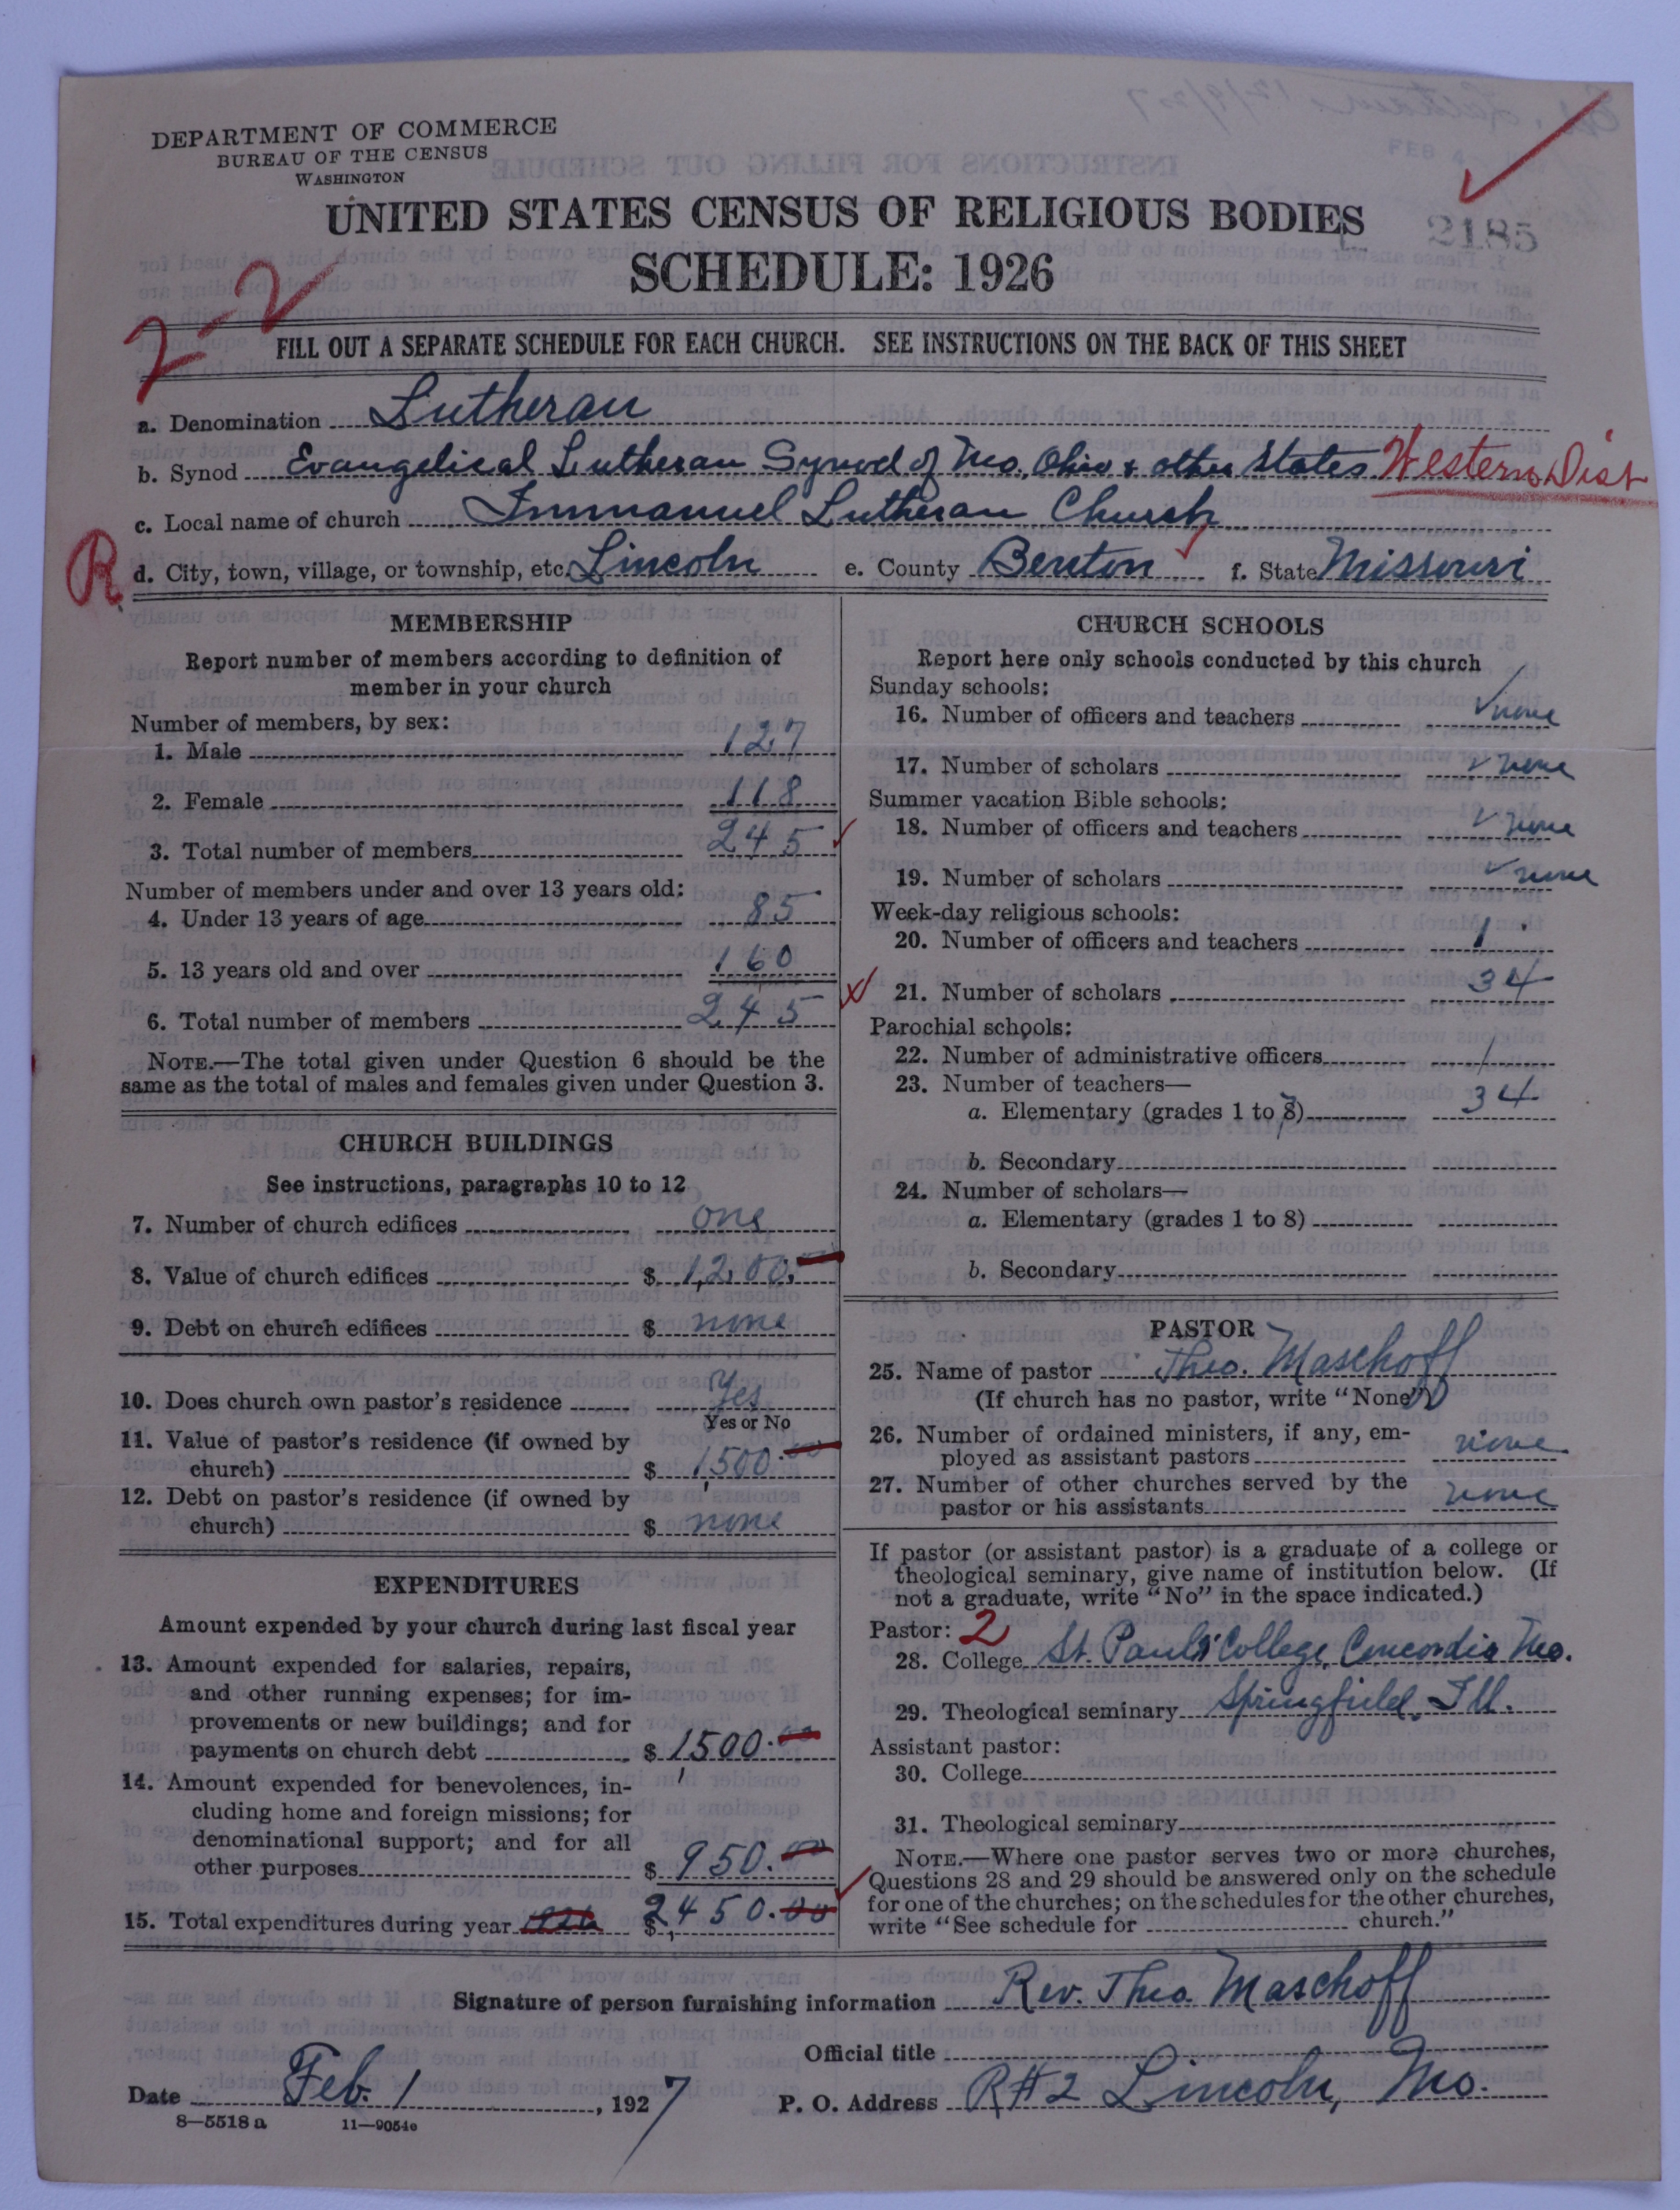 DEPARTMENT OF COMMERCE
BUREAU OF THE CENSUS
WASHINGTON
UNITED STATES CENSUS OF RELIGIOUS BODIES
2185
SCHEDULE: 1926
2-2
FILL OUT A SEPARATE SCHEDULE FOR EACH CHURCH. SEE INSTRUCTIONS ON THE BACK OF THIS SHEET
a. Denomination Lutheran
b. Synod Evangelical Lutheran Synod of Mo. Ohio & other States Western Dist
c. Local name of church Immanuel Lutheran Church
R d. City, town, village, or township, etc. Lincoln e. County Benton f. State Missouri
MEMBERSHIP
Report number of members according to definition of
member in your church
Number of members, by sex:
1. Male 127
2. Female 118
3. Total number of members 245
Number of members under and over 13 years old:
4. Under 13 years of age 85
5. 13 years old and over 160
6. Total number of members 245
NOTE.—The total given under Question 6 should be the
same as the total of males and females given under Question 3.
CHURCH BUILDINGS
See instructions, paragraphs 10 to 12
7. Number of church edifices one
8. Value of church edifices $ 1,200.00
9. Debt on church edifices $ none
10. Does church own pastor's residence Yes
Yes or No
11. Value of pastor's residence (if owned by
church) $ 1,500.00
12. Debt on pastor's residence (if owned by
church) $ none
EXPENDITURES
Amount expended by your church during last fiscal year
13. Amount expended for salaries, repairs,
and other running expenses; for im-
provements or new buildings; and for
payments on church debt $ 1,500.00
14. Amount expended for benevolences, in-
cluding home and foreign missions; for
denominational support; and for all
other purposes $ 950.00
15. Total expenditures during year 1926 $ 2,450.00
CHURCH SCHOOLS
Report here only schools conducted by this church
Sunday schools:
16. Number of officers and teachers none
17. Number of scholars none
Summer vacation Bible schools:
18. Number of officers and teachers none
19. Number of scholars none
Week-day religious schools:
20. Number of officers and teachers 1
21. Number of scholars 34
Parochial schools:
22. Number of administrative officers 1
23. Number of teachers—
a. Elementary (grades 1 to 8) 34
b. Secondary
24. Number of scholars—
a. Elementary (grades 1 to 8)
b. Secondary
PASTOR
25. Name of pastor Theo. Maschoff
(If church has no pastor, write "None")
26. Number of ordained ministers, if any, em-
ployed as assistant pastors none
27. Number of other churches served by the
pastor or his assistants none
If pastor (or assistant pastor) is a graduate of a college or
theological seminary, give name of institution below. (If
not a graduate, write "No" in the space indicated.)
Pastor: 2
28. College St. Paul's College, Concordia Mo.
29. Theological seminary Springfield, Ill.
Assistant pastor:
30. College
31. Theological seminary
NOTE.—Where one pastor serves two or more churches,
Questions 28 and 29 should be answered only on the schedule
for one of the churches; on the schedules for the other churches,
write "See schedule for church."
Signature of person furnishing information Rev. Theo. Maschoff
Official title
Date Feb. 1, 1927 P. O. Address R#2 Lincoln, Mo.
8—5518a 11—9054e